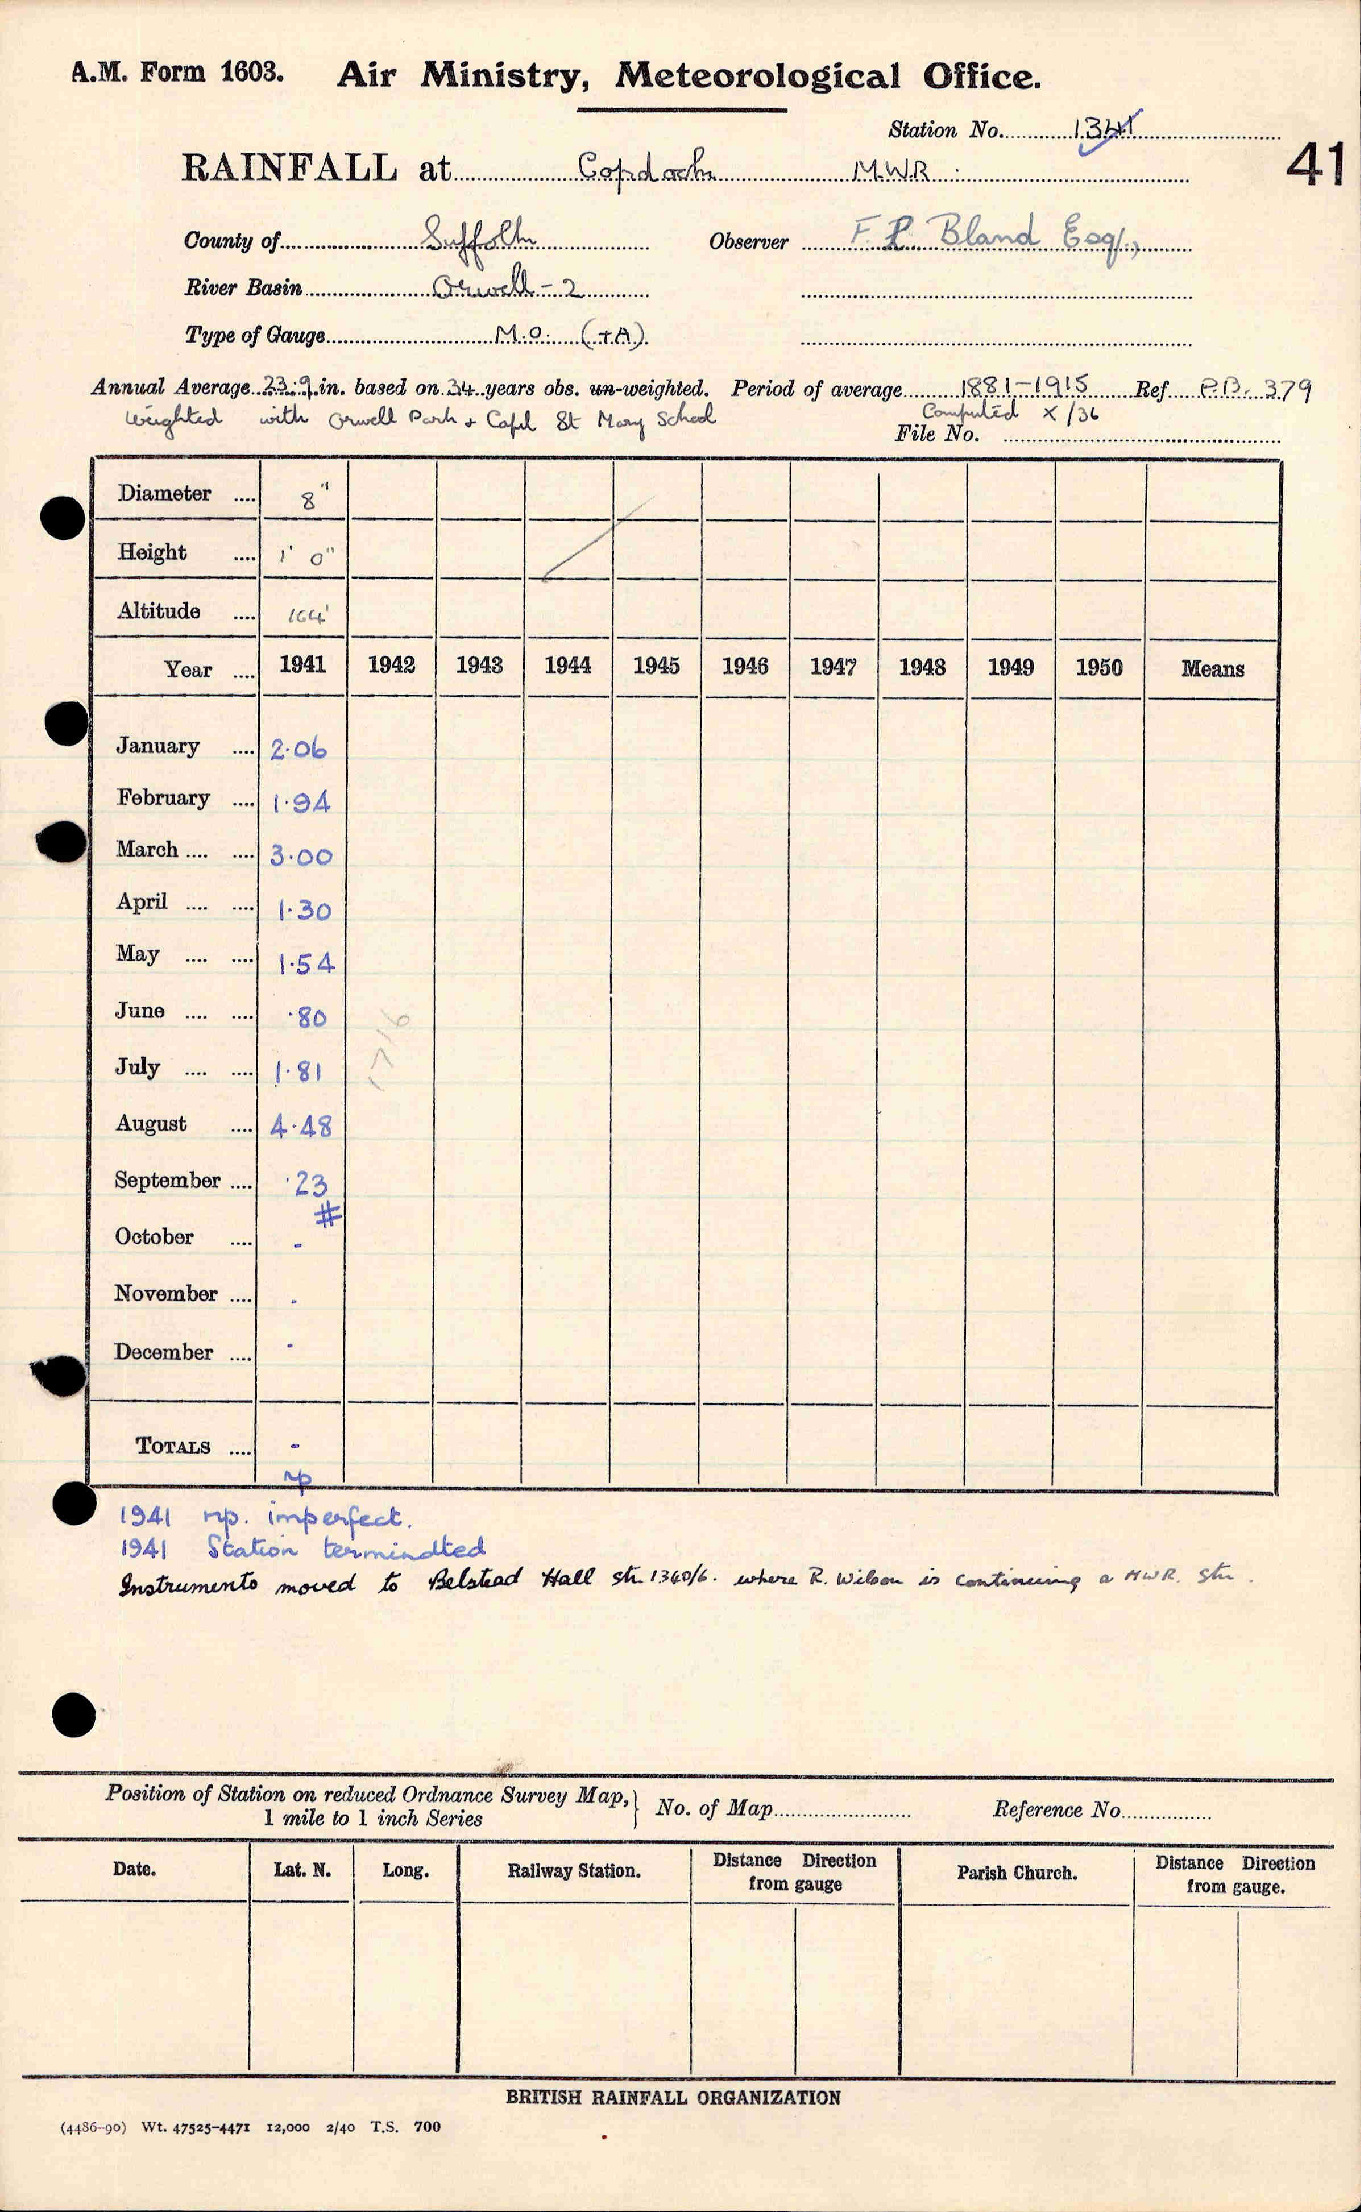 A.M. Form 1603. Air Ministry, Meteorological Office.
Station No. 1341
41
RAINFALL at Copdock MWR.
County of Suffolk Observer F.P. Bland Esq.,
River Basin Orwell-2
Type of Gauge M.O. (+A)
Annual Average 23.9 in. based on 34 years obs. un-weighted. Period of average 1881-1915 Ref P.B. 379
Weighted with Orwell Park & Capel St Mary School Computed X/36
File No.
Diameter .... 8"
Height .... 1' 0"
Altitude .... 164'
Year .... 1941 1942 1943 1944 1945 1946 1947 1948 1949 1950 Means
January .... 2.06
February .... 1.94
March .... .... 3.00
April .... .... 1.30
May .... .... 1.54
June .... .... .80
July .... .... 1.81
1716
August .... 4.48
September .... .23
#
October .... -
November .... -
December .... -
TOTALS .... -
np
1941 np. imperfect.
1941 Station termindted
Instruments moved to Belstead Hall stn 1340/6. where R. Wilson is continuing a MWR. stn.
Position of Station on reduced Ordnance Survey Map, } No. of Map Reference No.
1 mile to 1 inch Series
Date. Lat. N. Long. Railway Station. Distance Direction from gauge Parish Church. Distance Direction from gauge.
BRITISH RAINFALL ORGANIZATION
(4486-90) Wt. 47525-4471 12,000 2/40 T.S. 700